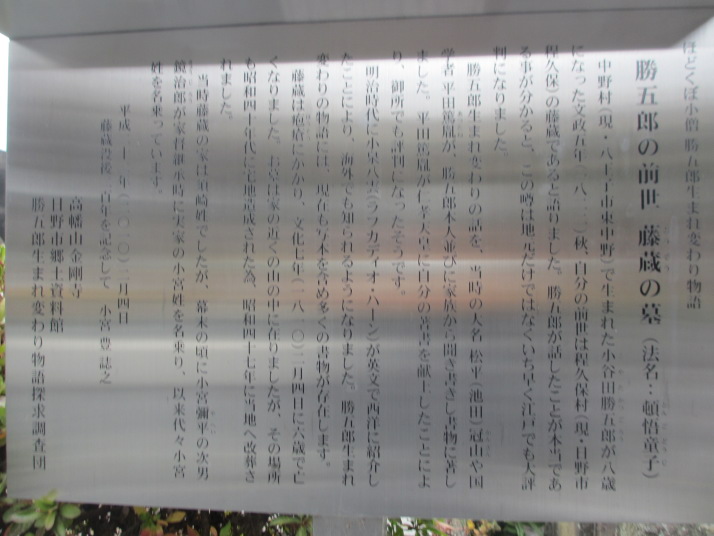 ほどくぼ小僧 勝五郎生まれ変わり物語
勝五郎の前世 藤蔵の墓(法名:頓悟童子)
中野村(現・八王子市東中野)で生まれた小谷田勝五郎が八歳
になった文政五年(一八二二)秋、自分の前世は程久保村(現・日野市
程久保)の藤蔵であると語りました。勝五郎が話したことが本当であ
る事が分かると、この噂は地元だけではなくいち早く江戸でも大評
判になりました。
勝五郎生まれ変わりの話を、当時の大名 松平(池田)冠山や国
学者 平田篤胤が、勝五郎本人並びに家族から聞き書きし書物に著し
ました。平田篤胤が仁孝天皇に自分の著書を献上したことによ
り、御所でも評判になったそうです。
明治時代に小泉八雲(ラフカディオ・ハーン)が英文で西洋に紹介し
たことにより、海外でも知られるようになりました。勝五郎生まれ
変わりの物語には、現在も写本を含め多くの書物が存在します。
藤蔵は疱瘡にかかり、文化七年(一八一〇)二月四日に六歳で亡
くなりました。お墓は家の近くの山の中に在りましたが、その場所
も昭和四十年代に宅地造成された為、昭和四十七年に当地へ改葬さ
れました。
当時藤蔵の家は須崎姓でしたが、幕末の頃に小宮彌平の次男
鏡治郎が家督継承時に実家の小宮姓を名乗り、以来代々小宮
姓を名乗っています。
平成二十二年(二〇一〇)二月四日
藤蔵没後二百年を記念して 小宮 豊 誌之
高幡山金剛寺
日野市郷土資料館
勝五郎生まれ変わり物語探求調査団